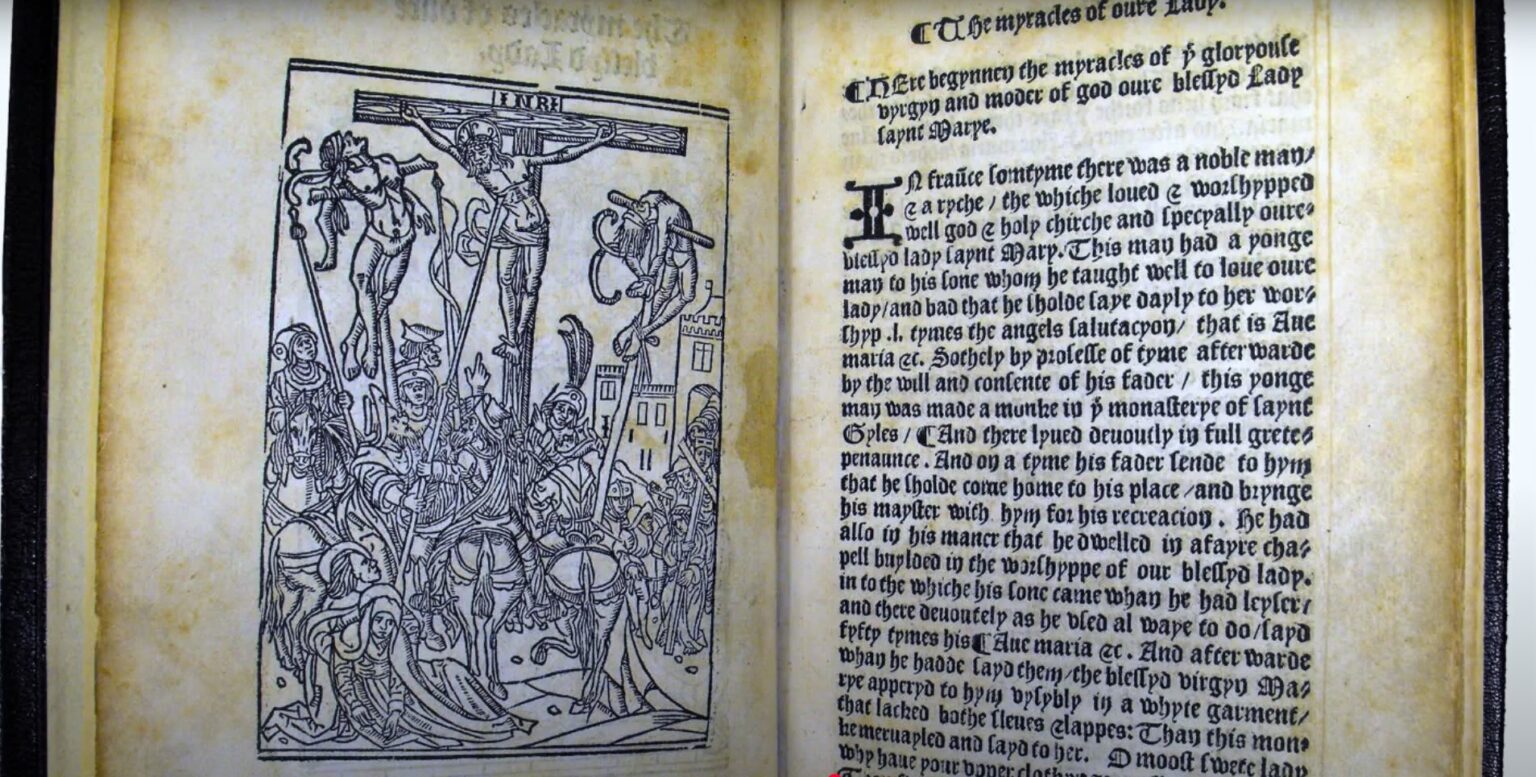 INRI
¶ The myracles of oure Lady.
¶ HEre begynnen the myracles of yͤ gloryouſe
vyrgyn and moder of god oure bleſſyd Lady
ſaynt Marye.
IN fraũce ſomtyme there was a noble man/
⁊ a ryche / the whiche loued ⁊ worſhypped
well god ⁊ holy chirche and ſpecyally oure⸗
bleſſyd lady ſaynt Mary. This man had a yonge
man to his ſone whom he taught well to loue oure
lady/and bad that he ſholde ſaye dayly to her wor⸗
ſhyp .l. tymes the angels ſalutacyon/ that is Aue
maria ⁊c. Sothely by proſeſſe of tyme afterwarde
by the will and conſente of his fader / this yonge
man was made a monke in yͤ monaſterye of ſaynt
Gyles / ¶ And there lyued deuoutly in full grete⸗
penaunce . And on a tyme his fader ſende to hym
that he ſholde come home to his place /and brynge
his mayſter with hym for his recreacion . He had
alſo in his maner that he dwelled in a fayre cha⸗
pell buylded in the worſhyppe of our bleſſyd lady.
in to the whiche his ſone came whan he had leyſer/
and there deuoutely as he vſed al waye to do/ſayd
fyfty tymes his ¶ Aue maria ⁊c. And after warde
whan he hadde ſayd them/the bleſſyd virgyn Ma⸗
rye apperyd to hym vyſybly in a whyte garment/
that lacked bothe ſleues ⁊lappes: Than this mon⸗
ke meruayled and ſayd to her. O mooſt ſwete lady
why haue your vpper